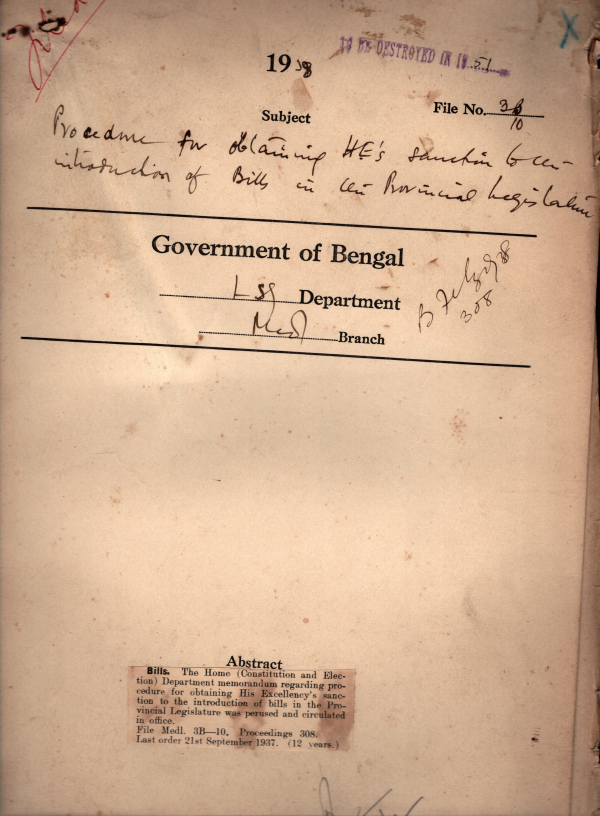 TO BE DESTROYED IN 19 51
1938
Subject
File No. 3B
10
Procedure for obtaining HE's sanction to the
introduction of Bills in the Provincial Legislature
Government of Bengal
LSG Department
Medl Branch
B
308
Abstract
Bills. The Home (Constitution and Elec-
tion) Department memorandum regarding pro-
cedure for obtaining His Excellency's sanc-
tion to the introduction of bills in the Pro-
vincial Legislature was perused and circulated
in office.
File Medl. 3B—10, Proceedings 308.
Last order 21st September 1937. (12 years.)